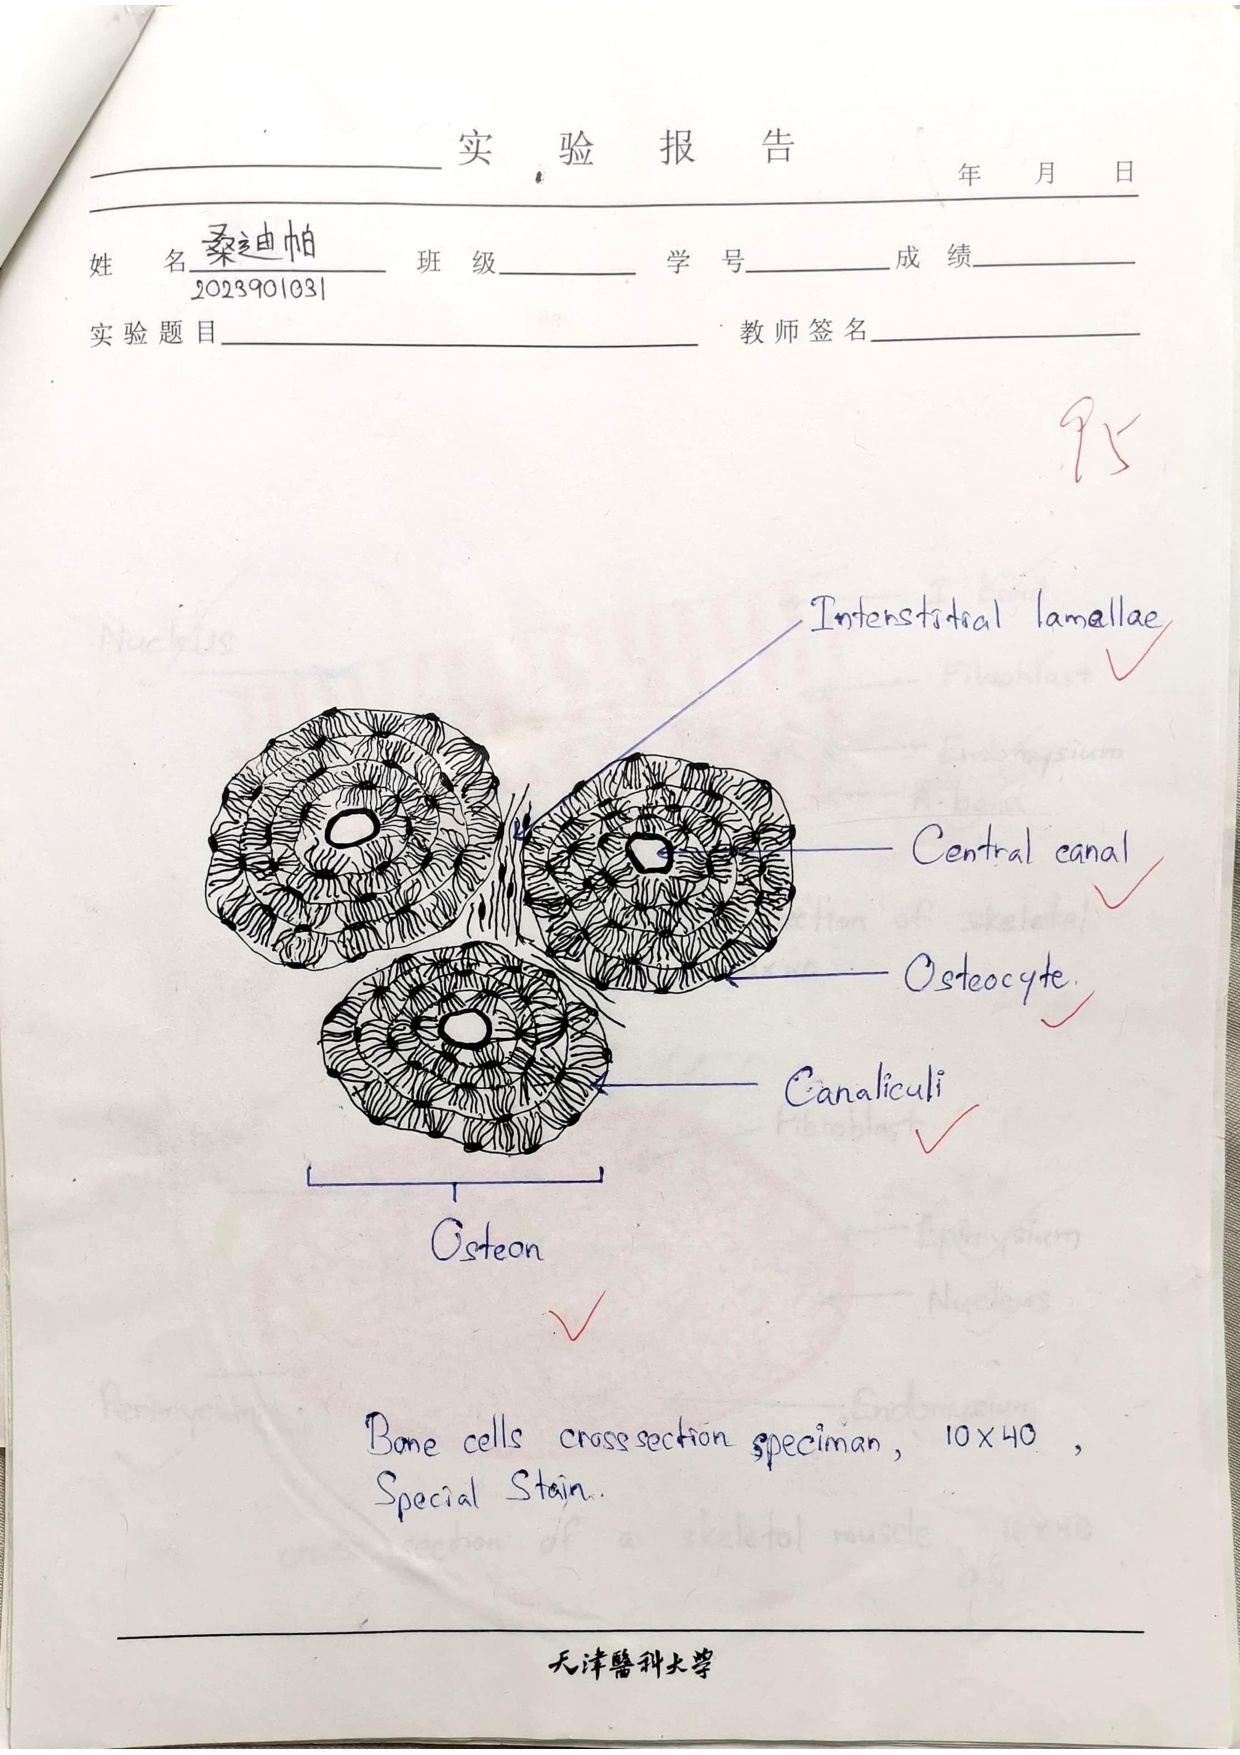 实验报告
年 月 日
姓名 桑迪帕 班级 学号 成绩
2023901031
实验题目 教师签名
95
Interstitial lamellae
Central canal
Osteocyte.
Canaliculi
Osteon
Bone cells cross section speciman, 10X40,
Special Stain.
天津醫科大学